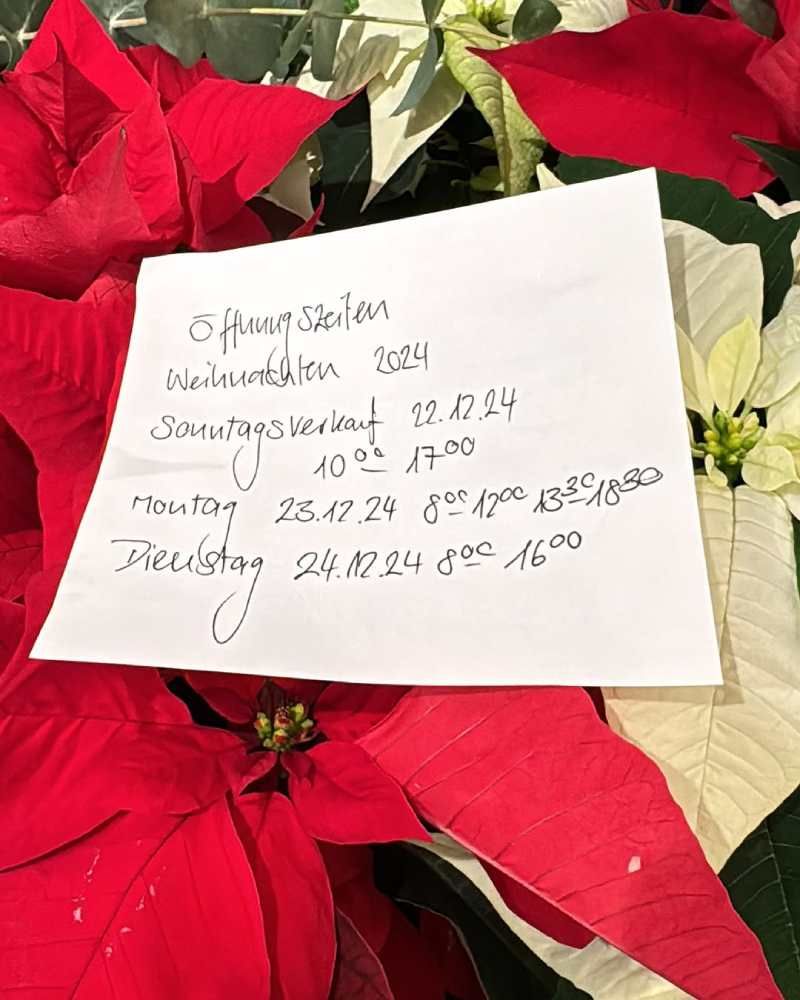 Öffnungszeiten
Weihnachten 2024
Sonntagsverkauf 22.12.24
10⁰⁰ 17⁰⁰
Montag 23.12.24 8⁰⁰ 12⁰⁰ 13³⁰ 18³⁰
Dienstag 24.12.24 8⁰⁰ 16⁰⁰